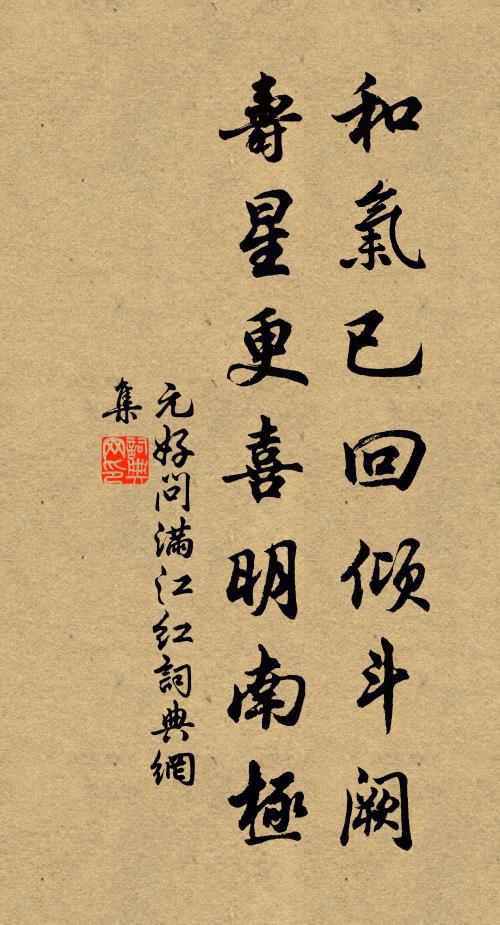 和氣已回傾斗闕
壽星更喜明南極
元好問滿江紅詞典網
集
詞典网印